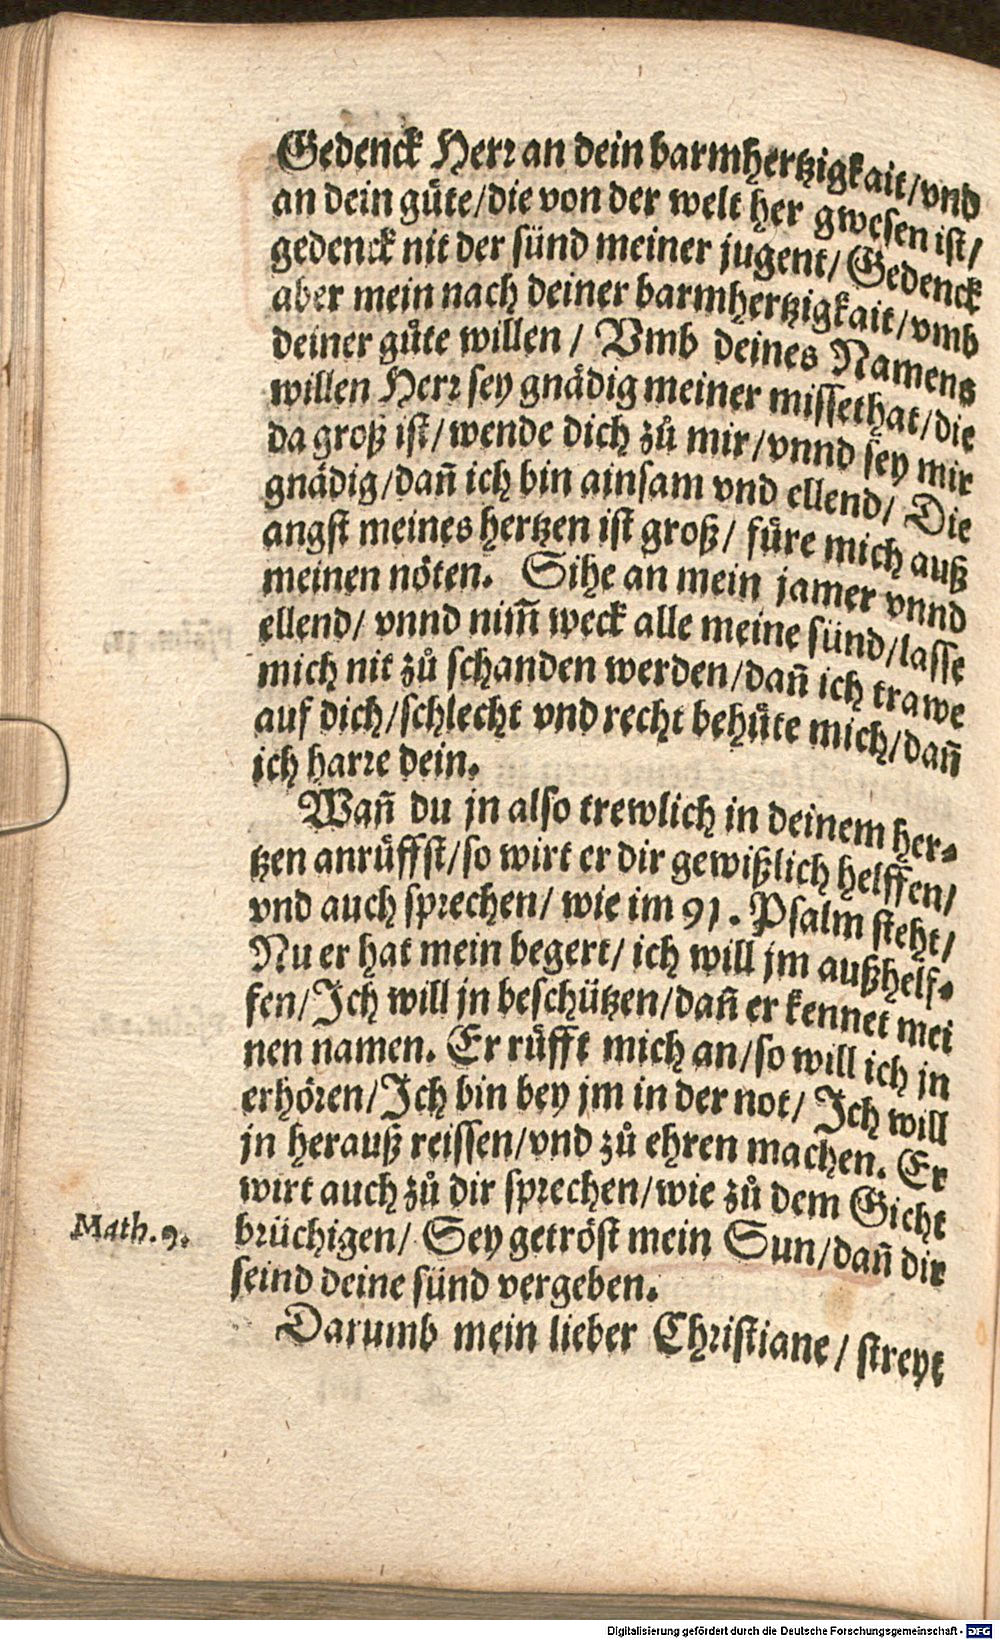 Gedenck Herr an dein barmhertzigkait/vnd
an dein guͤte/die von der welt her gwesen ist/
gedenck nit der sünd meiner jugent/Gedenck
aber mein nach deiner barmhertzigkait/vmb
deiner guͤte willen/ Vmb deines Namens
willen Herr sey gnädig meiner missethat/die
da groß ist/wende dich zů mir/vnnd sey mir
gnädig/dañ ich bin ainsam vnd ellend/ Die
angst meines hertzen ist groß/ fuͤre mich auß
meinen nöten. Sihe an mein jamer vnnd
ellend/ vnnd nim̃ weck alle meine sünd/lasse
mich nit zů schanden werden/dañ ich trawe
auf dich/schlecht vnd recht behuͤte mich/dañ
ich harre dein.
Wañ du jn also trewlich in deinem her⸗
tzen anruͤffst/so wirt er dir gewißlich helffen/
vnd auch sprechen/ wie im 91. Psalm steht/
Nu er hat mein begert/ ich will jm außhelf⸗
fen/Ich will jn beschützen/dañ er kennet mei
nen namen. Er ruͤfft mich an/so will ich jn
erhören/Ich bin bey jm in der not/ Ich will
jn herauß reissen/vnd zů ehren machen. Er
wirt auch zů dir sprechen/wie zů dem Gicht
Math. 9.
brüchigen/ Sey getröst mein Sun/dañ dir
seind deine sünd vergeben.
Darumb mein lieber Christiane/ streyt
Digitalisierung gefördert durch die Deutsche Forschungsgemeinschaft - DFG